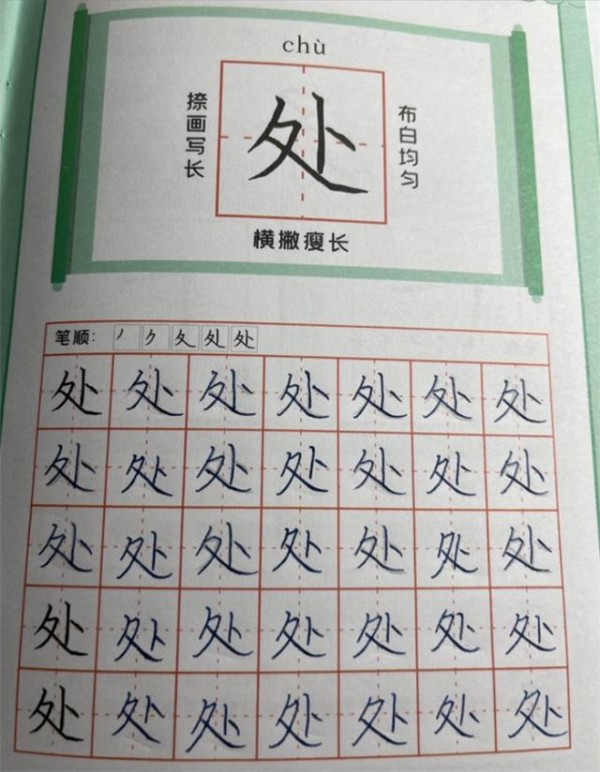 chù
处
捺画写长
布白均匀
横撇瘦长
笔顺：丿 ク 夂 处 处
处 处 处 处 处 处 处
处 处 处 处 处 处 处
处 处 处 处 处 处 处
处 处 处 处 处 处 处
处 处 处 处 处 处 处